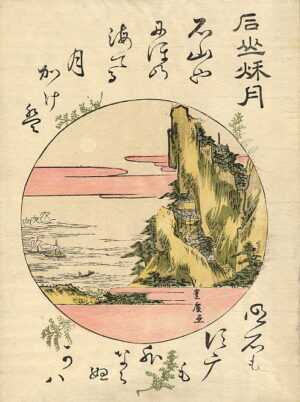 石山秌月
石山や
にほの
海てる
月
かけは
明石も
す广
も
外
ならぬ
かハ
豊廣画